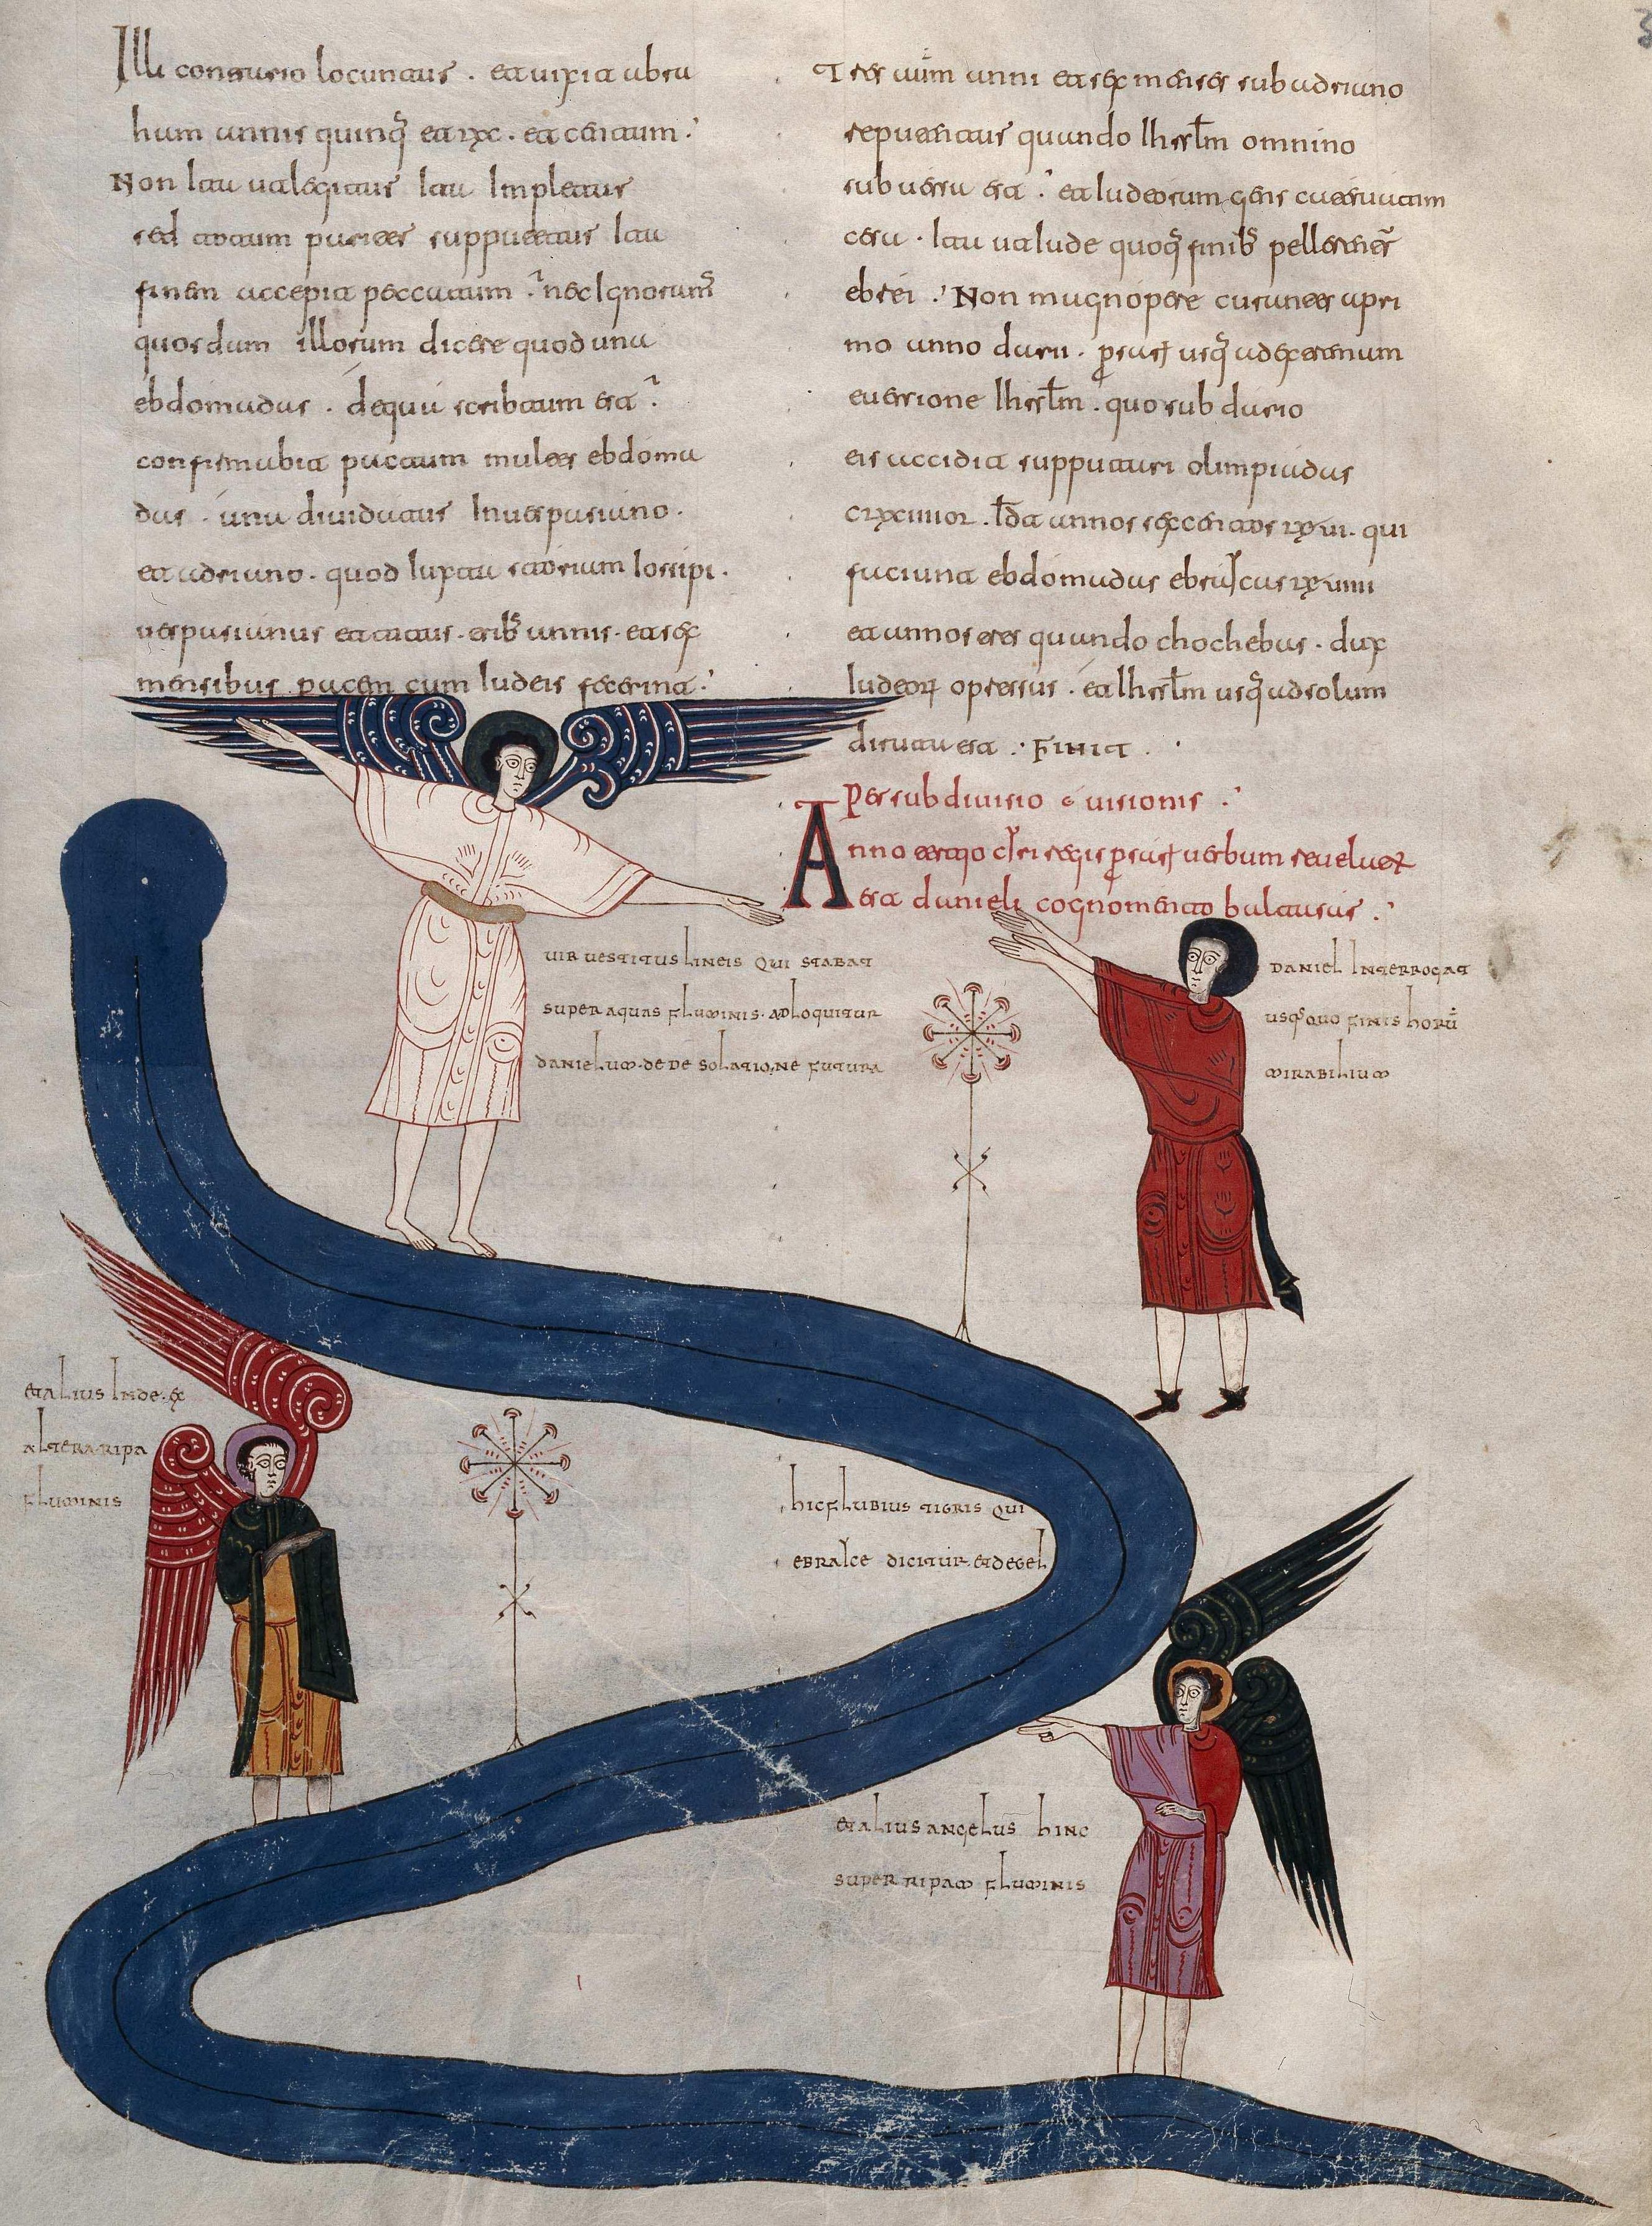 Illi contrario locuntur . et uixit abra
ham annis quinq̄ et lxx . et centum .
Non Ita ut legitur Ita Impletur
sed totum pariter supputetur Ita
finem accepit peccatum . nec Ignoram̄
quosdam illorum dicere quod una
ebdomadas . dequa scribtum est .
confirmabit pactum multes ebdoma
das . una diuidatur Inuespasiano .
et adriano . quod Iuxta storium Iossipi .
uespasianus et titus . trib̄ annis . et sex
mensibus pacem cum Iudeis fecerint .
Tres aūm anni et sex menses sub adriano
reputentur quando Ihrslm omnino
subuersa est . et Iudeorum gens cateruatim
cesa . Ita ut Iude quoq̄ finib̄ pellerentr̄
ebrei . Non magnopere curantes apri
mo anno darii . prsars usq̄ adextremum
euersione Ihrslm . quo sub dario
eis accidit supputari olimpiadas
clxxiiiior . Id̄t annos sexcentos lxxxxvi . qui
faciunt ebdomadas ebraicas lxxxxviiii
et annos tres quando chochebas . dux
Iudeor̄ opressus . et Ihrslm usq̄ adsolum
diruta est . FINIT .
Persubdiuisio ē uisionis .
Anno tertio ciri regis prsars uerbum reuelatr̄
est danieli cognomento baltasar .
UIR UESTITUS LINEIS QUI STABAT
SUPER AQUAS FLUMINIS . ADLOQUITUR
DANIELUM . DE DESOLATIONE FUTURA
DANIEL INTERROGAT
USQ̄QUO FINIS HORŪ
MIRABILIUM
ET ALIUS INDE . EX
ALTERA RIPA
FLUMINIS
HIC FLUBIUS TIGRIS QUI
EBRAICE DICITUR . ETDEGEL
ET ALIUS ANGELUS HINC
SUPER RIPAM FLUMINIS